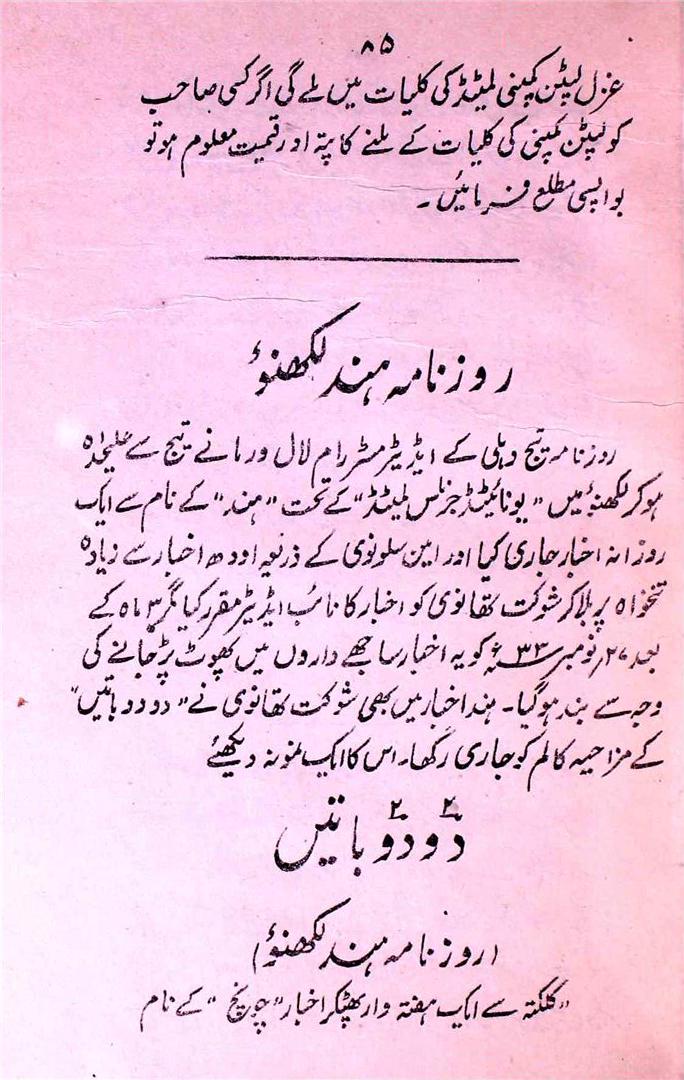 ۸۵
غزل لپٹن کمپنی لمیٹڈ کی کلیات میں ملے گی اگر کسی صاحب
کو لپٹن کمپنی کی کلیات کے ملنے کا پتہ اور قیمت معلوم ہو تو
بواپسی مطلع فرمائیں۔
روزنامہ ہند لکھنؤ
روزنامہ تیج دہلی کے ایڈیٹر مسٹر رام لال ورما نے تیج سے علیحدہ
ہو کر لکھنؤ میں "یونائیٹڈ جرنلس لمیٹڈ" کے تحت "ہند" کے نام سے ایک
روزانہ اخبار جاری کیا اور امین سلونوی کے ذریعہ اودھ اخبار سے زیادہ
تنخواہ پر بلا کر شوکت تھانوی کو اخبار کا نائب ایڈیٹر مقرر کیا مگر ۳ ماہ کے
بعد ۲۷ نومبر ۳۳ء کو یہ اخبار ساجھے داروں میں پھوٹ پڑ جانے کی
وجہ سے بند ہو گیا۔ ہند اخبار میں بھی شوکت تھانوی نے "دو دو باتیں"
کے مزاحیہ کالم کو جاری رکھا۔ اس کا ایک نمونہ دیکھئے
۲ ۲
دو دو باتیں
(روزنامہ ہند لکھنؤ)
"کلکتہ سے ایک ہفتہ وار پھٹکر اخبار "چونچ" کے نام